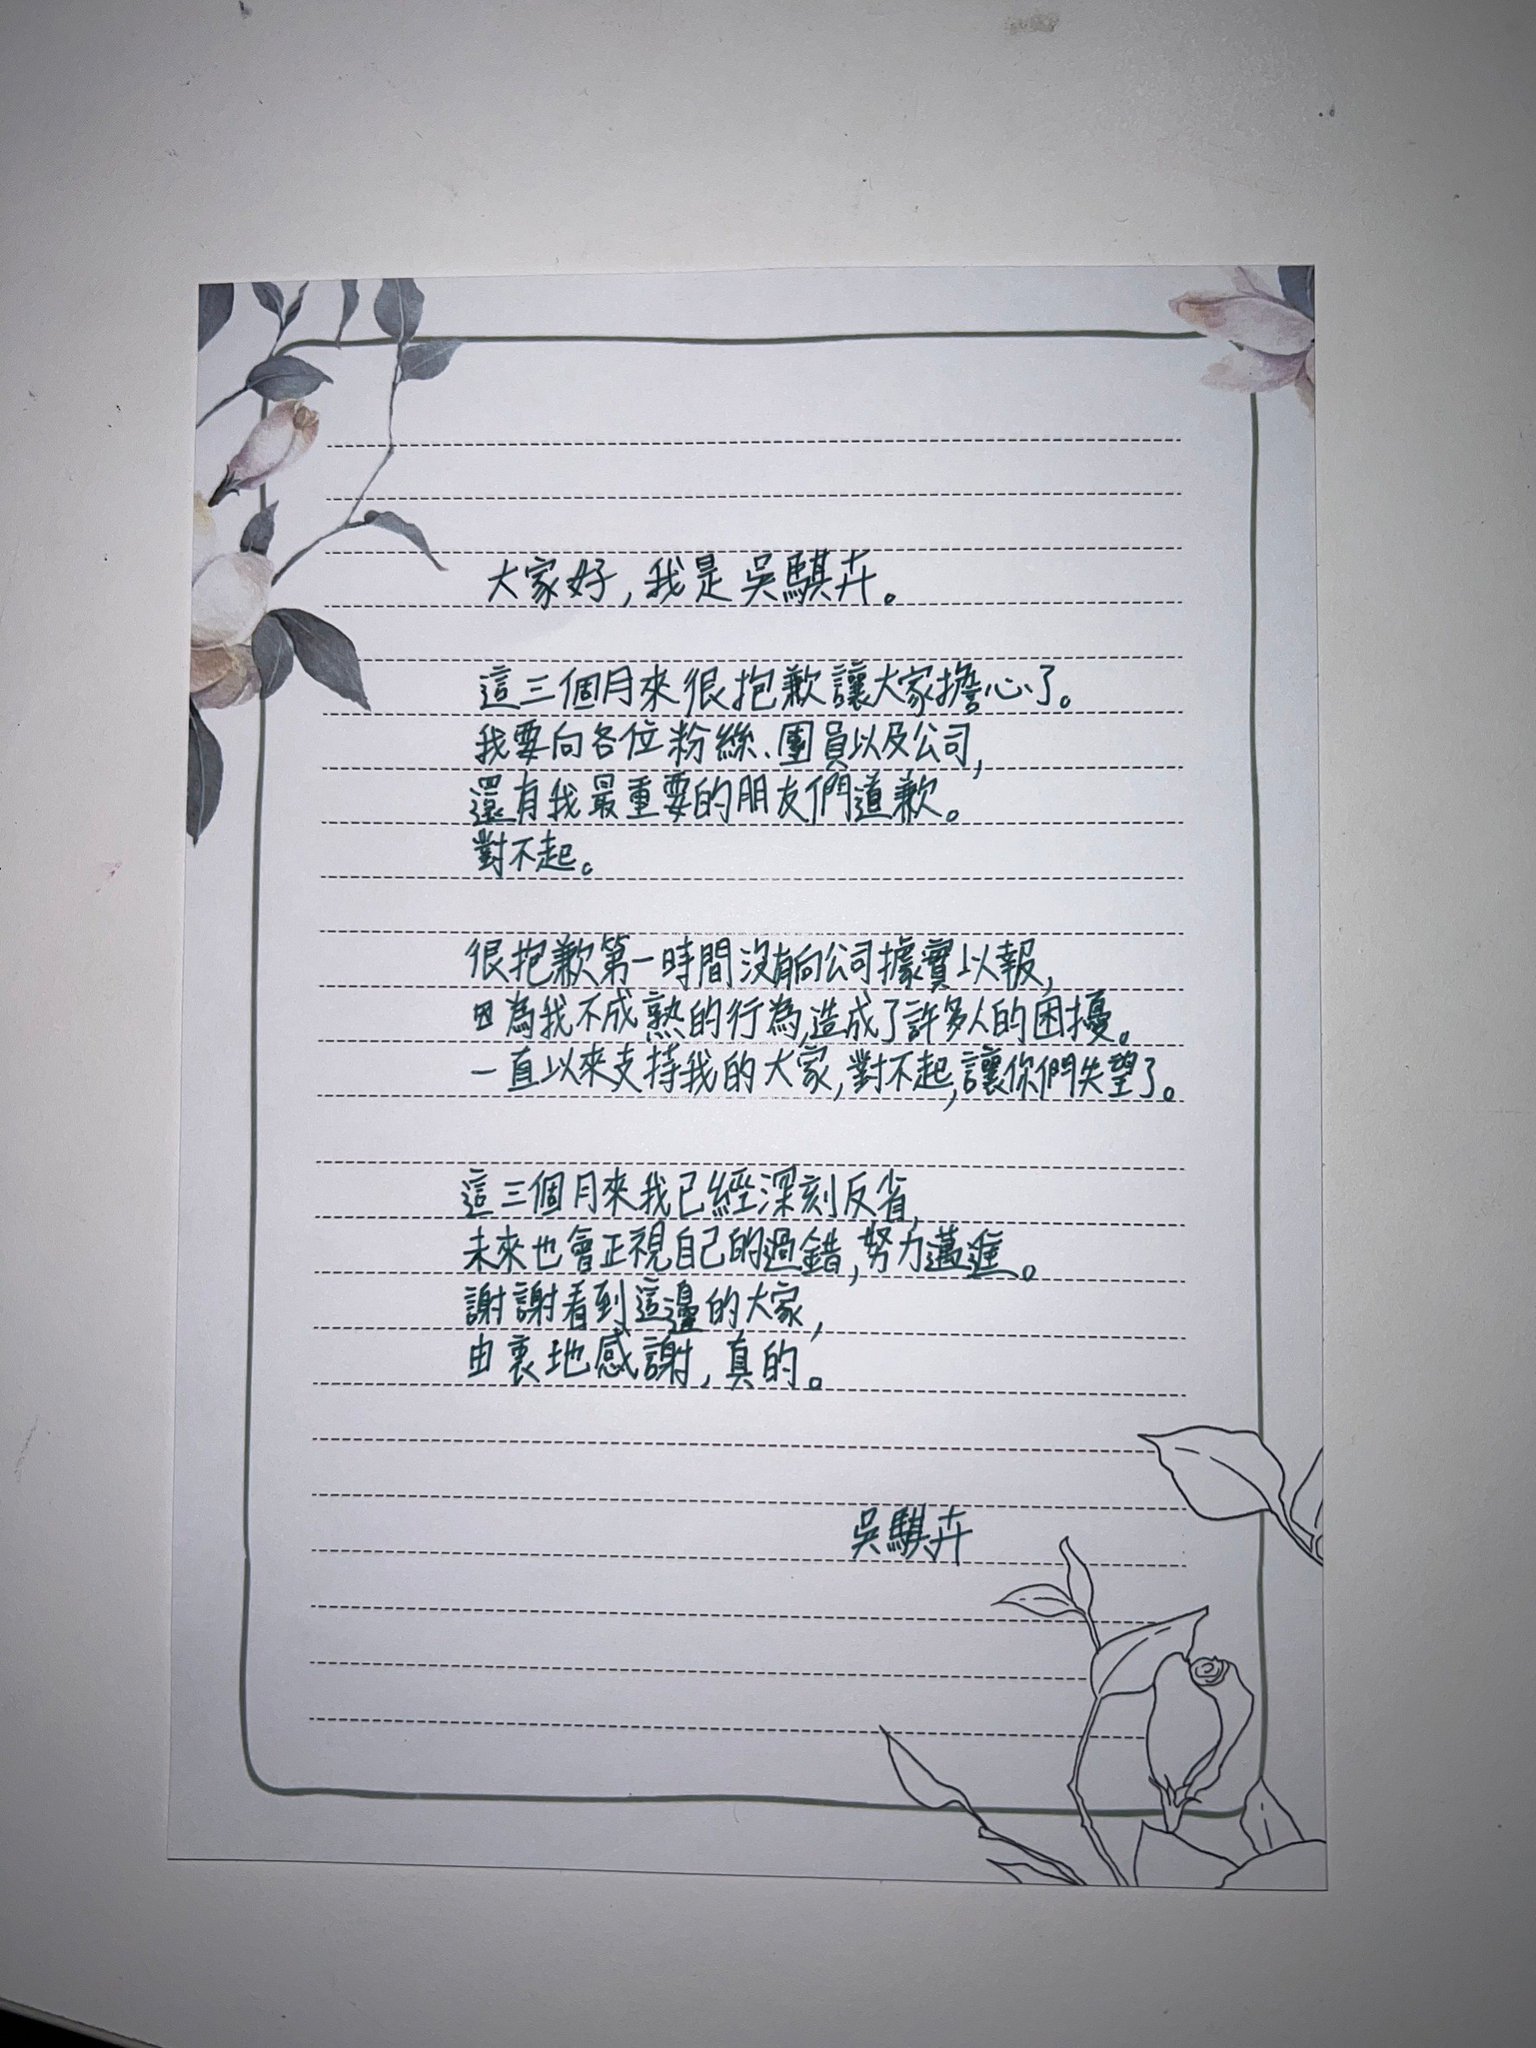 大家好，我是吳騏卉。
這三個月來很抱歉讓大家擔心了。
我要向各位粉絲、團員以及公司，
還有我最重要的朋友們道歉。
對不起。
很抱歉第一時間沒有向公司據實以報，
因為我不成熟的行為，造成了許多人的困擾。
一直以來支持我的大家，對不起，讓你們失望了。
這三個月來我已經深刻反省，
未來也會正視自己的過錯，努力邁進。
謝謝看到這邊的大家，
由衷地感謝，真的。
吳騏卉